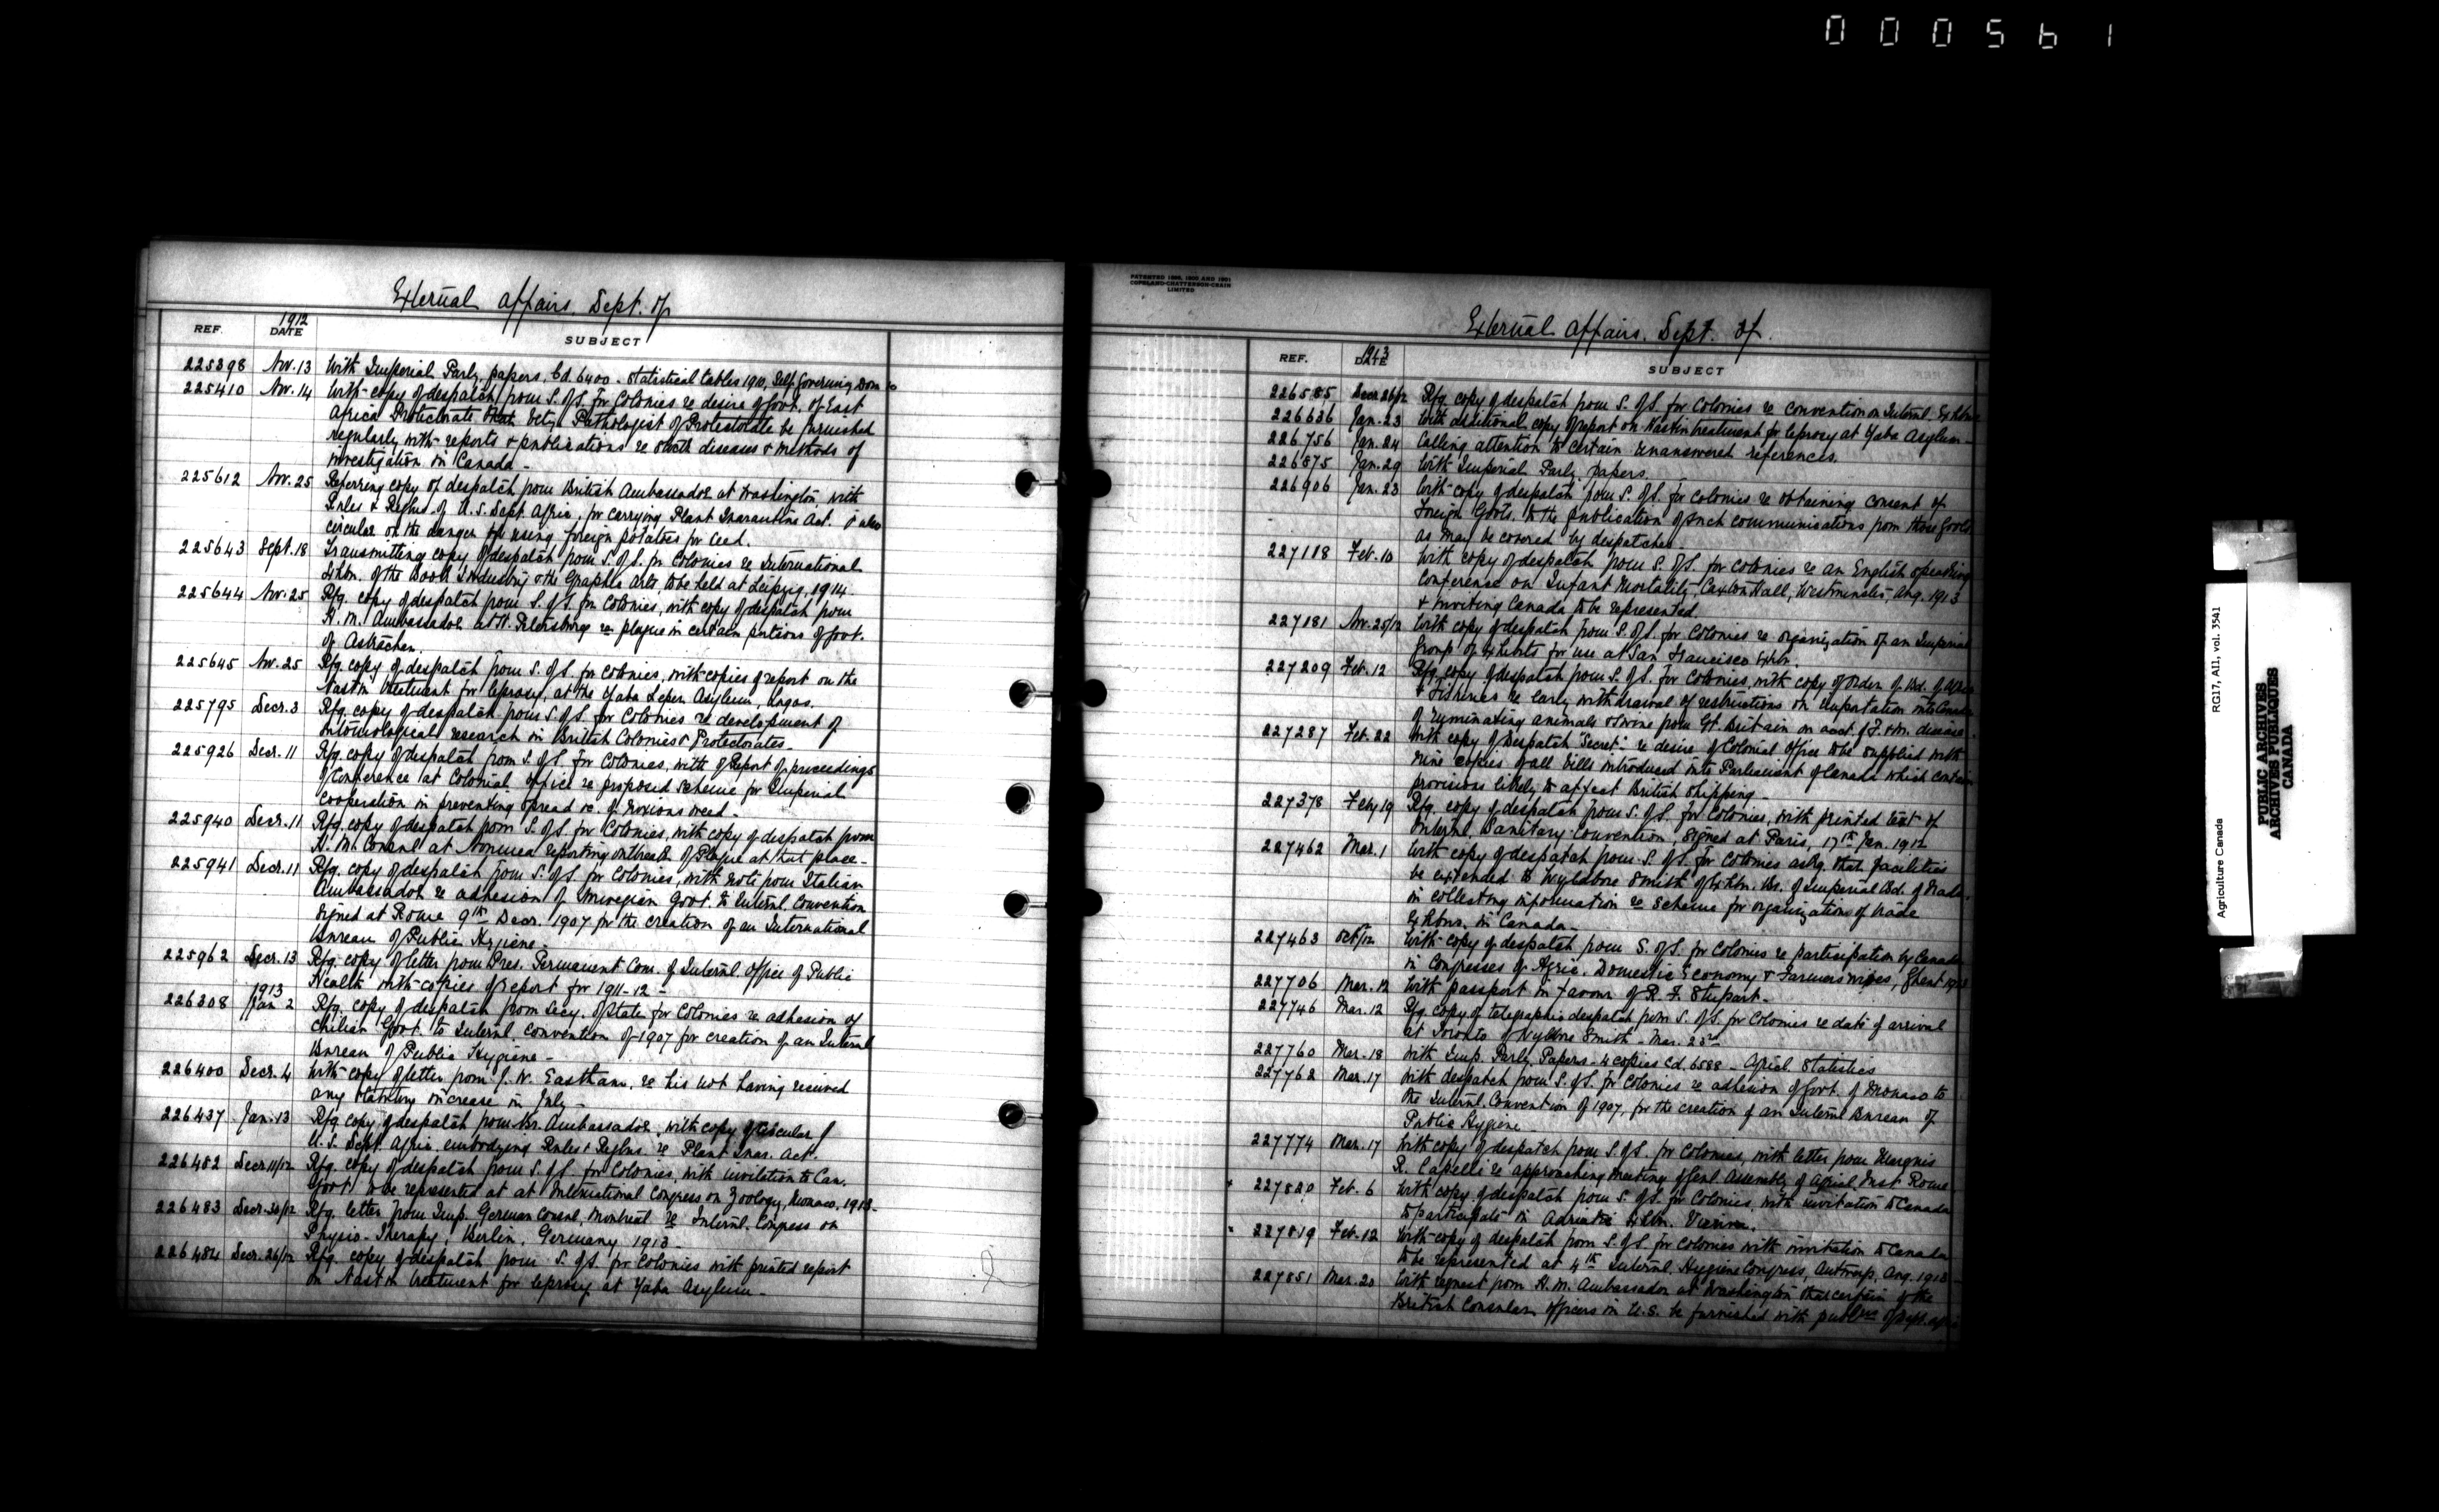 000561
External Affairs, Dept. of
REF. 1912 DATE SUBJECT
225398 Nov. 13 With Imperial Parly papers, Cd. 6400 - Statistical tables 1910, Self Governing Dom
225410 Nov. 14 With copy of despatch from S. of S. for Colonies re desire of Govt. of East
Africa Protectorate that Vety Pathologist of Protectorate be furnished
regularly with reports & publications re diseases & methods of
investigation in Canada -
225612 Nov. 25 Referring copy of despatch from British Ambassador at Washington with
Rules & Regtns. of U.S. Dept. Agric. for carrying Plant Quarantine Act. & also
circular on the danger of using foreign potatoes for seed.
225643 Sept. 18 Transmitting copy of despatch from S. of S. for Colonies re International
Exhbn. of the Book Industry & the Graphic Arts, to be held at Leipzig, 1914.
225644 Nov. 25 Rfg. copy of despatch from S. of S. for Colonies, with copy of despatch from
H. M. Ambassador at St. Petersburg re plague in certain portions of Govt.
of Astrachan.
225645 Nov. 25 Rfg. copy of despatch from S. of S. for Colonies, with copies of report on the
Nastin treatment for leprosy, at the Yaba Leper Asylum, Lagos.
225795 Decr. 3 Rfg. copy of despatch from S. of S. for Colonies re development of
entomological research in British Colonies & Protectorates -
225926 Decr. 11 Rfg. copy of despatch from S. of S. for Colonies, with of Report of proceedings
of Conference at Colonial Office re proposed scheme for Imperial
Cooperation in preventing spread &c. of noxious weed -
225940 Decr. 11 Rfg. copy of despatch from S. of S. for Colonies, with copy of despatch from
H. M. Consul at Noumea reporting outbreak of Plague at that place -
225941 Decr. 11 Rfg. copy of despatch from S. of S. for Colonies, with note from Italian
Ambassador re adhesion of Norwegian Govt. to Internl. Convention
signed at Rome 9th Decr. 1907 for the creation of an International
Bureau of Public Hygiene -
225962 Decr. 13 Rfg. copy of letter from Pres. Permanent Com. of Internl. Office of Public
Health with copies of report for 1911-12 -
1913
226308 Jan 2 Rfg. copy of despatch from Secy. of State for Colonies re adhesion of
Chilian Govt. to Internl. Convention of 1907 for creation of an Internl
Bureau of Public Hygiene -
226400 Decr. 4 With copy of letter from J. W. Eastham, re his not having received
any statutory increase in July -
226437 Jan. 13 Rfg. copy of despatch from Br. Ambassador, with copy of circular of
U.S. Dept. Agric. embodying Rules & Regtns. re Plant Quar. Act.
226482 Decr 11/12 Rfg. copy of despatch from S. of S. for Colonies, with invitation to Can.
Govt. to be represented at at International Congress on Zoology, Monaco, 1913 -
226483 Decr. 30/12 Rfg. letter from Imp. German Consul, Montreal re Internl. Congress on
Physio-Therapy, Berlin, Germany 1913 -
226484 Decr. 26/12 Rfg. copy of despatch from S. of S. for Colonies with printed report
on Nastin treatment for leprosy at Yaba Asylum -
PATENTED 1896, 1900 AND 1901
COPELAND-CHATTERSON-CRAIN
LIMITED
External Affairs, Dept. of.
REF. 1913 DATE SUBJECT
226585 Decr. 26/12 Rfg. copy of despatch from S. of S. for Colonies re convention on Internl. Exhbns
226636 Jan. 23 With additional copy of report on Nastin treatment for leprosy at Yaba Asylum -
226756 Jan. 24 Calling attention to certain unanswered references.
226875 Jan. 29 With Imperial Parly. papers.
226906 Jan. 23 With copy of despatch from S. of S. for Colonies re obtaining consent of
Foreign Govts. to the publication of such communications from those Govts
as may be covered by despatches
227118 Feb. 10 With copy of despatch from S. of S. for Colonies re an English speaking
Conference on Infant Mortality, Caxton Hall, Westminster, Aug. 1913
& inviting Canada to be represented.
227181 Nov. 25/12 With copy of despatch from S. of S. for Colonies re organization of an Imperial
Group of Exhibits for use at San Francisco Exhbn.
227209 Feb. 12 Rfg. copy of despatch from S. of S. for Colonies, with copy of Order of Bd. of Agric
& Fisheries re early withdrawal of restrictions on importation into Canada
of ruminating animals & swine from Gt. Britain on acct. of F. & M. disease.
227287 Feb. 22 With copy of Despatch "Secret" re desire of Colonial Office to be supplied with
nine copies of all Bills introduced into Parliament of Canada which contain
provisions likely to affect British shipping -
227378 Feby 19 Rfg. copy of despatch from S. of S. for Colonies, with printed text of
Internl. Sanitary Convention, signed at Paris, 17th Jan. 1912
227462 Mar. 1 With copy of despatch from S. of S. for Colonies askg. that facilities
be extended to Wyldbore Smith of Exhbn. Br. of Imperial Bd. of Trade
in collecting information re scheme for organization of trade
Exhbns. in Canada -
227463 Oct/12 With copy of despatch from S. of S. for Colonies re participation by Canada
in Congresses of Agric. Domestic Economy & Farmers wives, Ghent 1913
227706 Mar. 12 With passport in favour of R. F. Stupart -
227746 Mar. 12 Rfg. copy of telegraphic despatch from S. of S. for Colonies re date of arrival
at Toronto of Wyldbore Smith - Mar. 23rd
227760 Mar. 18 With Imp. Parly. Papers - 4 copies Cd. 6588 - Agricl. Statistics
227762 Mar. 17 With despatch from S. of S. for Colonies re adhesion of Govt. of Monaco to
the Internl. Convention of 1907, for the creation of an Internl Bureau of
Public Hygiene -
227774 Mar. 17 With copy of despatch from S. of S. for Colonies, with letter from Marquis
R. Capelli re approaching meeting of Genl. Assembly of Agricl. Inst Rome
227820 Feb. 6 With copy of despatch from S. of S. for Colonies, with invitation to Canada
to participate in Adriatic Exhbn. Vienna.
227819 Feb. 12 With copy of despatch from S. of S. for Colonies with invitation to Canada
to be represented at 4th Internl. Hygiene Congress, Antwerp, Aug. 1913 -
227851 Mar. 20 With request from H. M. Ambassador at Washington that certain of the
British Consular officers in U.S. be furnished with publns of Dept. Agric
Agriculture Canada RG17, AII, vol. 3541
PUBLIC ARCHIVES
ARCHIVES PUBLIQUES
CANADA